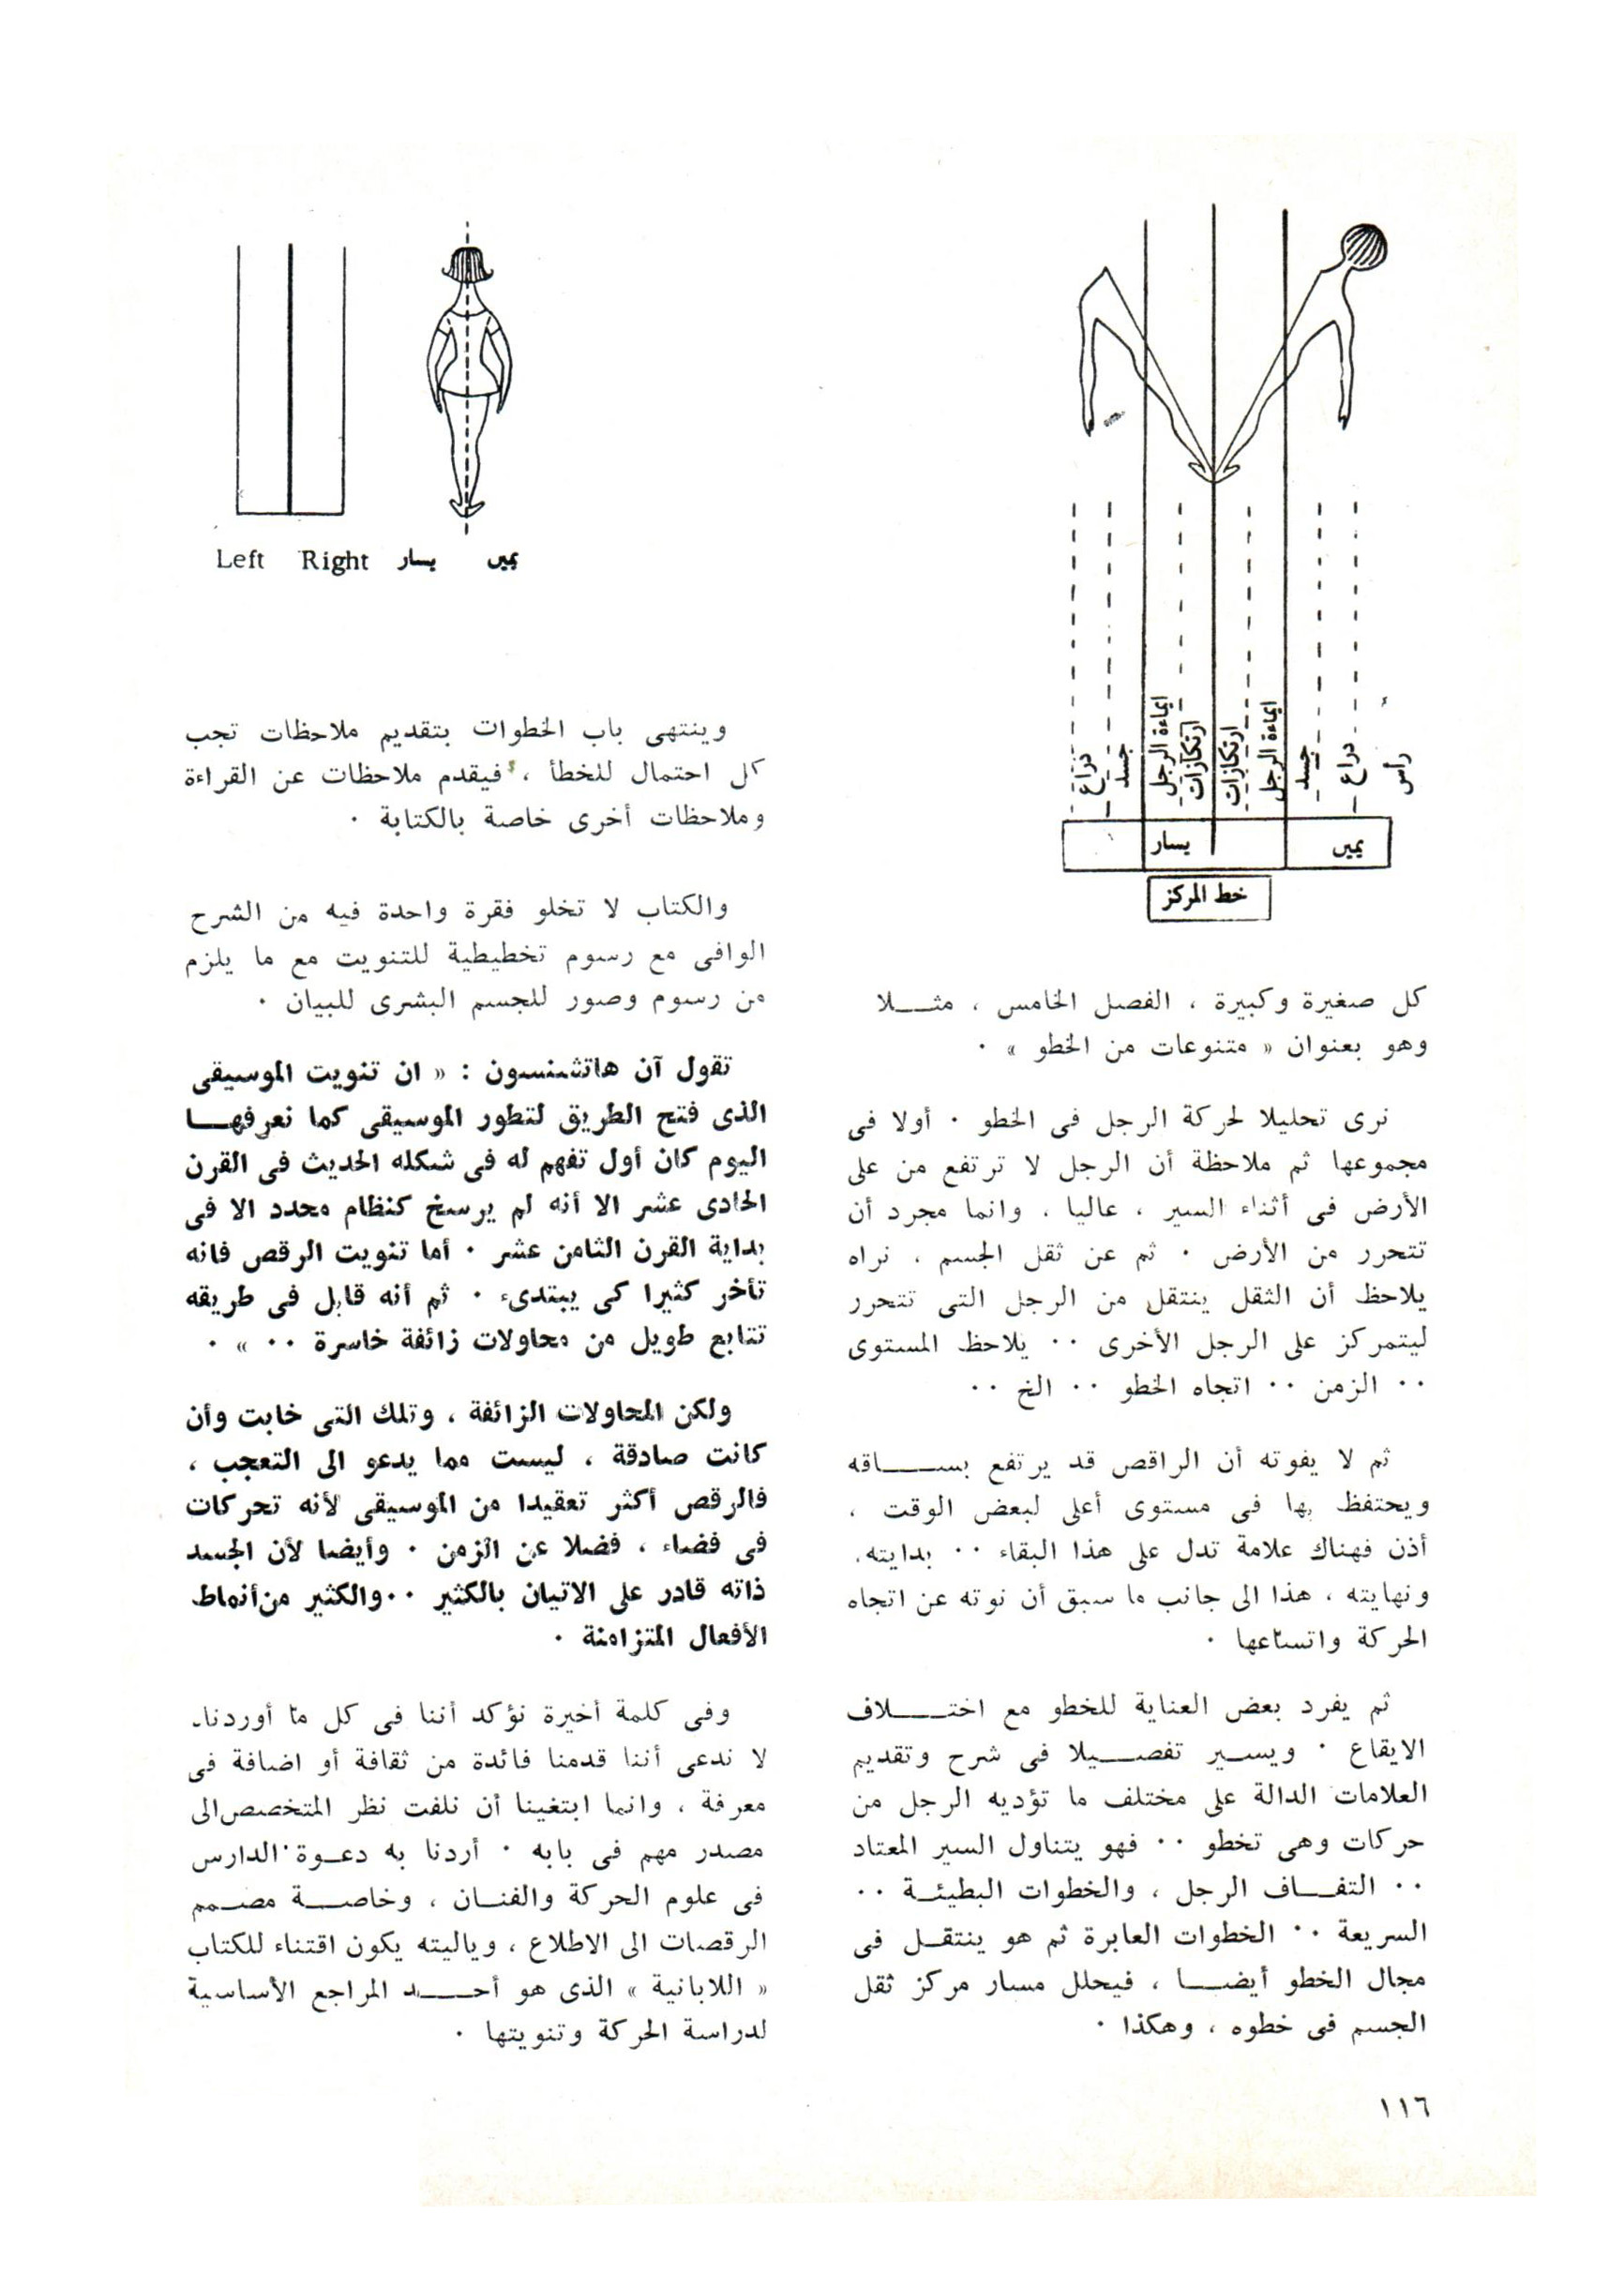 ذراع
جسد
ايماءة الرجل
ارتكازات
ارتكازات
ايماءة الرجل
جسد
دراع
رأس
يسار
يمين
خط المركز
كل صغيرة وكبيرة ، الفصل الخامس ، مثلا
وهو بعنوان « متنوعات من الخطو » .
نرى تحليلا لحركة الرجل فى الخطو . أولا فى
مجموعها ثم ملاحظة أن الرجل لا ترتفع من على
الأرض فى أثناء السير ، عاليا ، وانما مجرد أن
تتحرر من الأرض . ثم عن ثقل الجسم ، نراه
يلاحظ أن الثقل ينتقل من الرجل التى تتحرر
ليتمركز على الرجل الأخرى .. يلاحظ المستوى
.. الزمن .. اتجاه الخطو .. الخ ..
ثم لا يفوته أن الراقص قد يرتفع بساقه
ويحتفظ بها فى مستوى أعلى لبعض الوقت ،
أذن فهناك علامة تدل على هذا البقاء .. بدايته،
ونهايته ، هذا الى جانب ما سبق أن نوته عن اتجاه
الحركة واتساعها .
ثم يفرد بعض العناية للخطو مع اختلاف
الايقاع . ويسير تفصيلا فى شرح وتقديم
العلامات الدالة على مختلف ما تؤديه الرجل من
حركات وهى تخطو .. فهو يتناول السير المعتاد
.. التفاف الرجل ، والخطوات البطيئة ..
السريعة .. الخطوات العابرة ثم هو ينتقل فى
مجال الخطو أيضا ، فيحلل مسار مركز ثقل
الجسم فى خطوه ، وهكذا .
Left Right يسار يمين
وينتهى باب الخطوات بتقديم ملاحظات تجب
كل احتمال للخطأ ، فيقدم ملاحظات عن القراءة
وملاحظات أخرى خاصة بالكتابة .
والكتاب لا تخلو فقرة واحدة فيه من الشرح
الوافى مع رسوم تخطيطية للتنويت مع ما يلزم
من رسوم وصور للجسم البشرى للبيان .
تقول آن هاتشنسون : « ان تنويت الموسيقى
الذى فتح الطريق لتطور الموسيقى كما نعرفها
اليوم كان أول تفهم له فى شكله الحديث فى القرن
الحادى عشر الا أنه لم يرسخ كنظام محدد الا فى
بداية القرن الثامن عشر . أما تنويت الرقص فانه
تأخر كثيرا كى يبتدىء . ثم أنه قابل فى طريقه
تتابع طويل من محاولات زائفة خاسرة .. » .
ولكن المحاولات الزائفة ، وتلك التى خابت وأن
كانت صادقة ، ليست مما يدعو الى التعجب ،
فالرقص أكثر تعقيدا من الموسيقى لأنه تحركات
فى فضاء ، فضلا عن الزمن . وأيضا لأن الجسد
ذاته قادر على الاتيان بالكثير ..والكثير من أنماط
الأفعال المتزامنة .
وفى كلمة أخيرة نؤكد أننا فى كل ما أوردنا.
لا ندعى أننا قدمنا فائدة من ثقافة أو اضافة فى
معرفة ، وانما ابتغينا أن نلفت نظر المتخصص الى
مصدر مهم فى بابه . أردنا به دعوة الدارس
فى علوم الحركة والفنان ، وخاصة مصمم
الرقصات الى الاطلاع ، وياليته يكون اقتناء للكتاب
« اللابانية » الذى هو أحد المراجع الأساسية
لدراسة الحركة وتنويتها .
١١٦